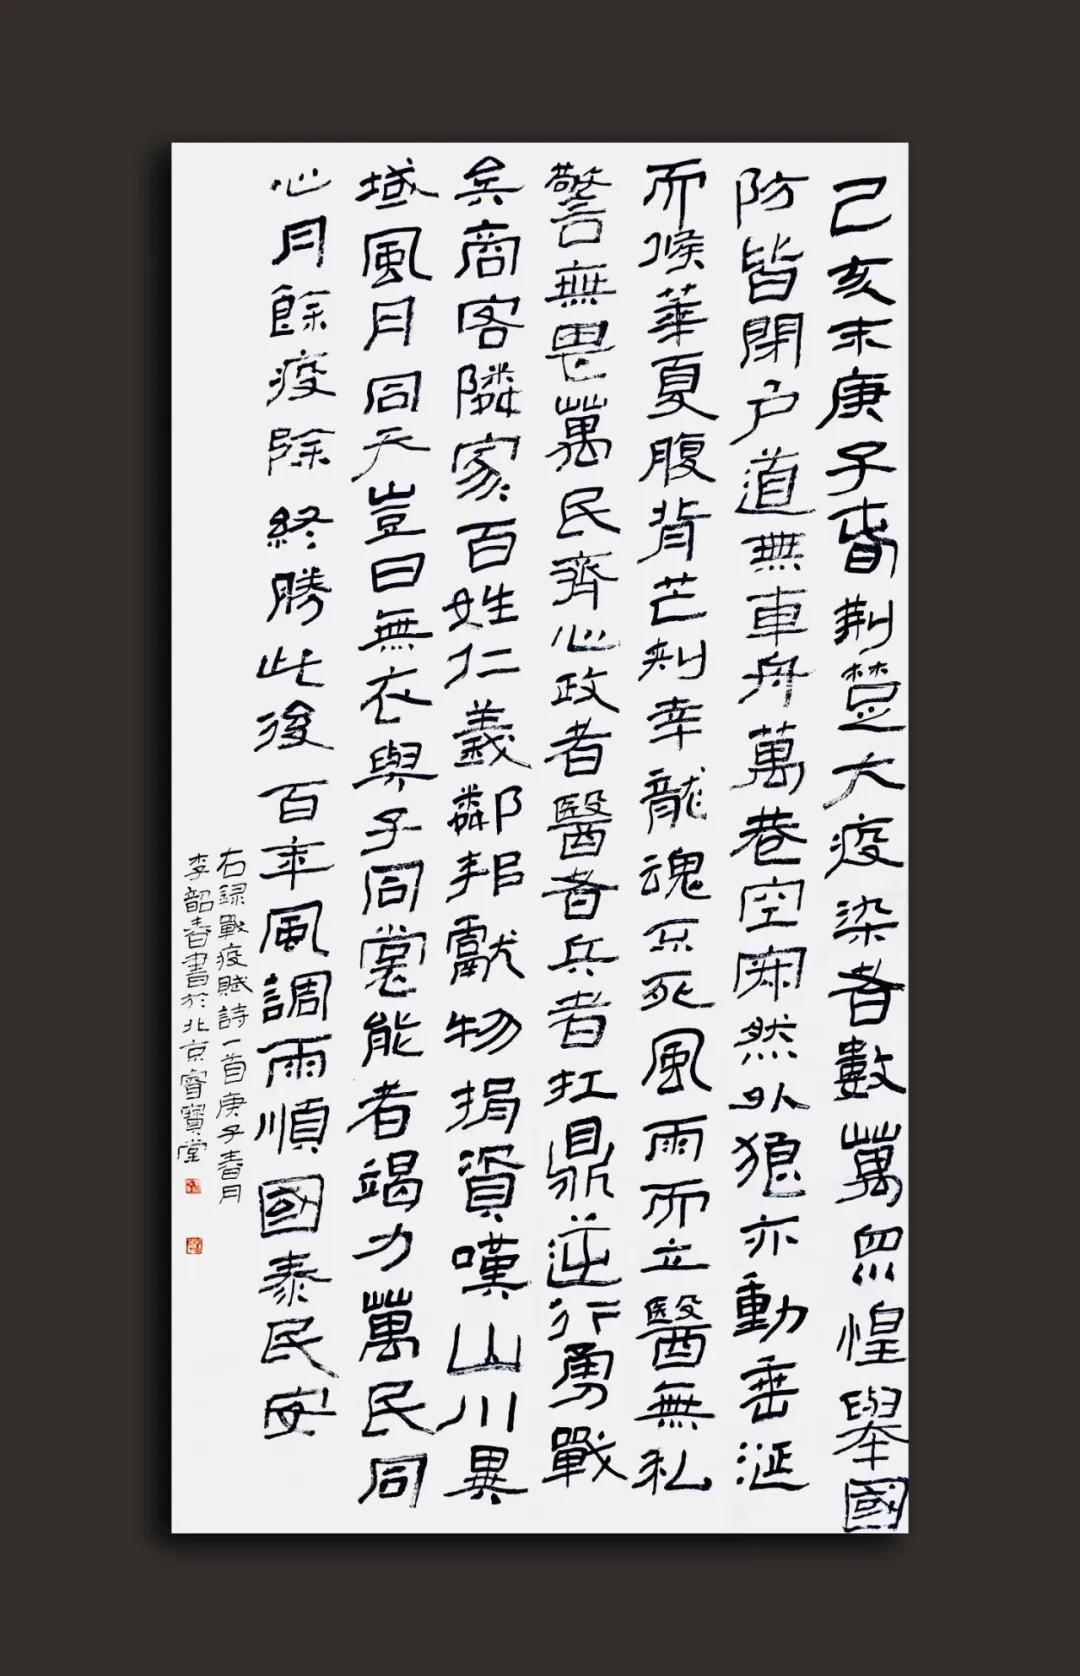 己亥末庚子春荆楚大疫染者數萬眾惶舉國
防皆閉户道無車舟萬巷空寂然外狼亦動垂涎
而候華夏腹背芒刺幸龍魂不死風雨而立醫無私
警無畏萬民齊心政者醫者兵者扛鼎逆行勇戰
矣商客隣家百姓仁義鄰邦獻物捐資嘆山川異
域風月同天豈曰無衣與子同裳能者竭力萬民同
心月餘疫除終勝此後百年風調雨順國泰民安
右録戰疫賦詩一首庚子春月
李韶春書於北京寶堂